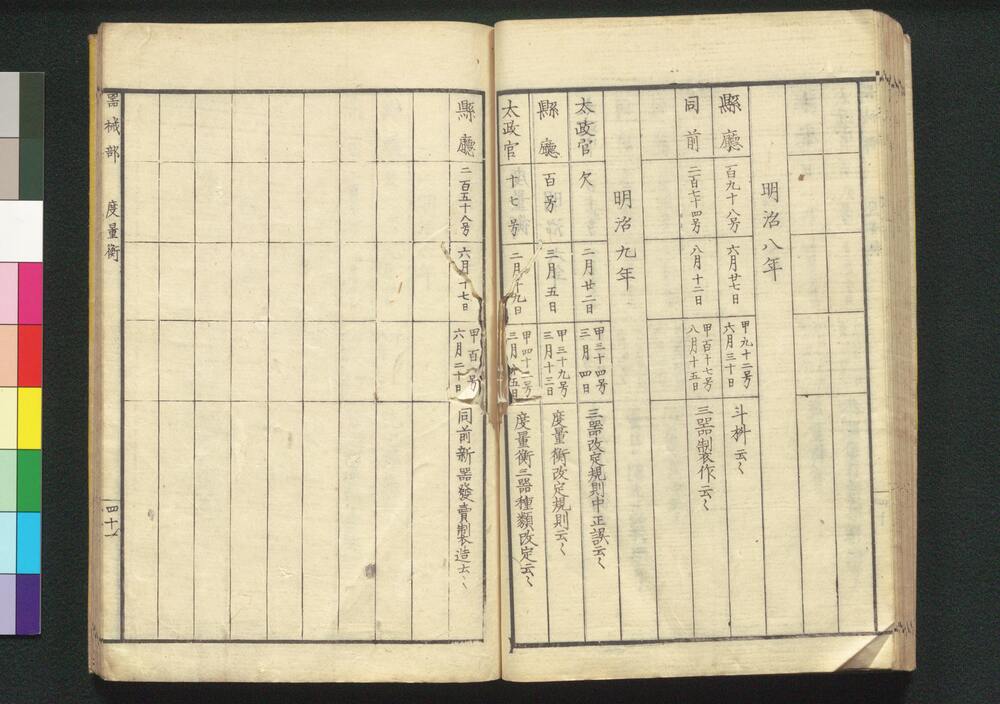 明治八年
縣廳 百九十八号 六月廿七日 甲九十二号 六月三十日 斗枡云〻
同前 二百七十四号 八月十二日 甲百十七号 八月十五日 三器製作云〻
明治九年
太政官 欠 二月廿二日 甲三十四号 三月四日 三器改定規則中正誤云〻
縣廳 百号 三月五日 甲三十九号 三月十三日 度量衡改定規則云〻
太政官 十七号 二月十九日 甲四十二号 三月十五日 度量衡三器種類改定云〻
縣廳 二百五十八号 六月十七日 甲百号 六月二十日 同前新器發賣製造云〻
器械部 度量衡 四十一